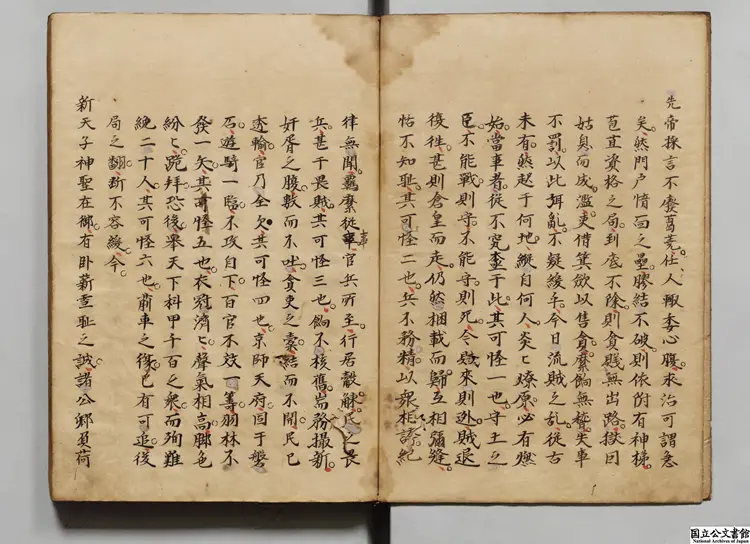 先帝採言不棄葑菲任人輙委心腹求治可謂急
矣然門户情面之壘膠結不破則依附有神梯
苞苴資格之局到底不除則貪賤無出路挨回
姑息而成濫吏借箕歛以售貪縻餉無揵失車
不罰以此弭亂不疑緩乎今日流賊之乱從古
未有然起于何地縱自何人炎〻燎原必有燃
始當事者從不究查于此其可怪一也守土之
臣不能戰則守不能守則死今賊來則迯賊退
復徃甚則倉皇而走仍然捆載而歸互相彌縫
恬不知耻其可怪二也兵不務精以衆相誇紀
律無聞羈縻從事官兵所至行居觳觫民之畏
兵甚于畏賊其可怪三也餉不核舊耑務撮新
奸胥之腹數而不吐貪吏之橐結而不開民已
透輸官乃全欠其可怪四也京師天府固于磐
石遊騎一臨不攻自下百官不效一籌羽林不
發一矢其可怪五也衣冠濟〻聲氣相高脚色
紛〻跪拜恐後舉天下科甲千百之衆而殉難
絶二十人其可怪六也前車之後已有可追後
局之翻斷不容緩今
新天子神聖在御有卧薪雪耻之誠諸公卿負荷
国立公文書館
National Archives of Japan